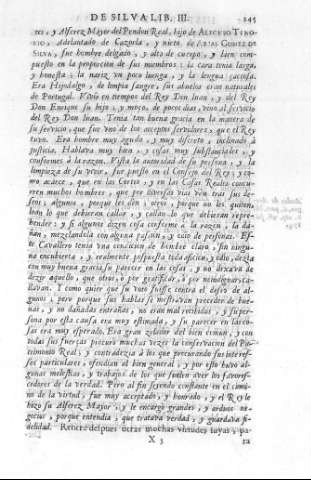 DE SILVA LIB. III. 245
res, y Alferez Mayor del Pendon Real, hijo de ALFONSO TENO-
RIO, Adelantado de Caçorla, y nieto de ARIAS GOMEZ DE
SILVA, fue hombre delgado, y alto de cuerpo, y bien com-
puesto en la proporcion de sus miembros: la cara tenia larga,
y honesta: la nariz un poco luenga, y la lengua
Era Hijodalgo, de limpia sangre, sus abuelos eran naturales
de Portugal. Vivió en tiempos del Rey Don Iuan, y del Rey
Don Enrique su hijo, y moço, de pocos dias, vino al servicio
del Rey Don Iuan. Tenia tan buena gracia en la manera de
su servicio, que fue uno de los aceptos servidores, que el Rey
tuvo. Era hombre muy agudo, y muy discreto, inclinado à
justicia. Hablava muy bien, y cosas muy substanciales, y
conformes à la razon. Vista la autoridad de su persona, y la
limpieza de su vivir, fue puesto en el Consejo del Rey; y co-
mo acaece, que en las Cortes, y en las Casas Reales concu-
rren muchos hombres, que por diversas vias van tras sus de-
seos; algunos, porque les den, otros, porque no les quiten,
han lo que debieran callar, y callan lo que debieran repre-
hender: y si algunos dizen cosa conforme à la razon, la da-
ñan, mezclandola con alguna passion, y odio de personas. Es-
te Cavallero tenia una condicion de hombre claro, sin ningu-
na encubierta, y realmente pospuesta toda aficion, y odio, dezia
con muy buena gracia su parecer en las cosas, y no dexava de
dezir aquello, que otros, ò por gratificar, ò por no indignar, ca-
llavan. Y como quier que su voto fuesse contra el deseo de al-
gunos, pero porque sus hablas se mostravan proceder de bue-
nas, y no dañadas entrañas, no eran mal recibidas, y su per-
sona por esta causa era muy estimada, y su parecer en las co-
sas era muy esperado. Era gran zelador del bien comun, y con
todas sus fuerças procurò muchas vezes la conservacion del Pa-
trimonio Real, y contradezia à los que procurando sus interes-
ses particulares, ofendian al bien general, y por esto huvo al-
gunas molestias, y trabajos de los que suelen aver los favore-
cedores de la verdad. Pero al fin seyendo constante en el cami-
no de la virtud, fue muy acceptado, y honrado, y el Rey le
hizo su Alferez Mayor, y le encargò grandes, y arduos ne-
gocios, porque entendia, que tratava verdad, y guardava fi-
delidad. Refiere despues otras muchas virtudes suyas, pa-
X 3 ra